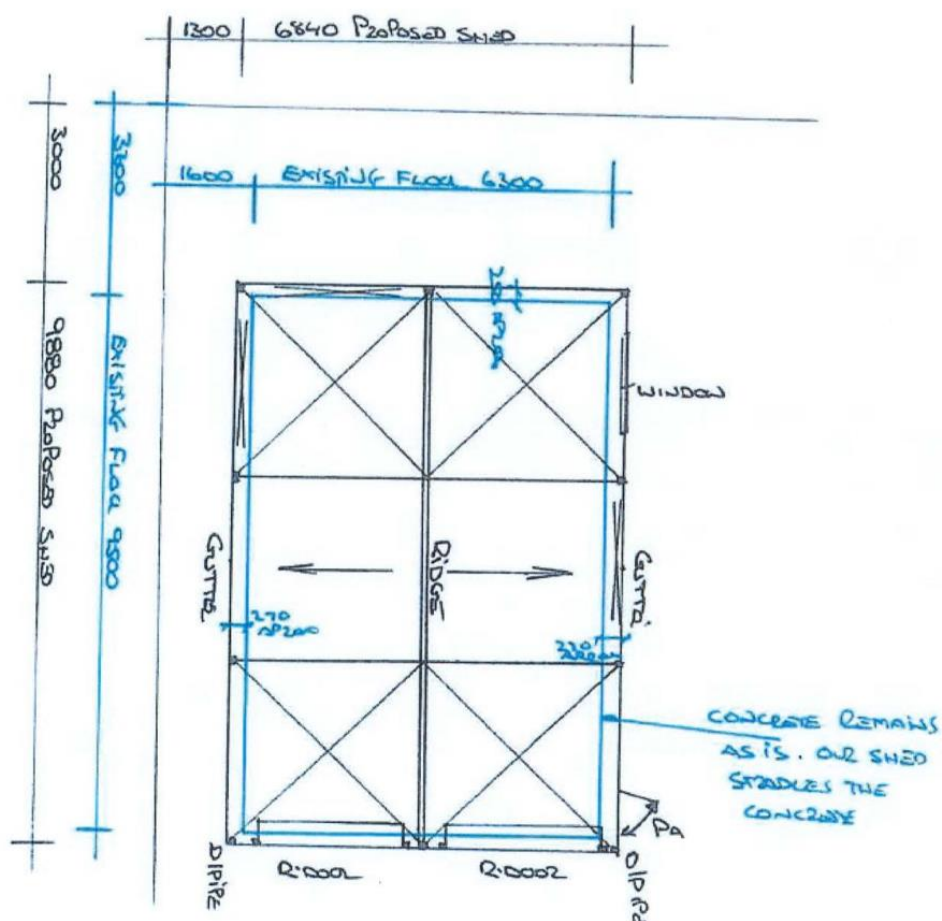 1300
6840 PROPOSED SHED
1600
EXISTING FLOOR 6300
3000
9880 PROPOSED SHED
EXISTING FLOOR 9500
WINDOW
GUTTER
RIDGE
GUTTER
270
CONCRETE REMAINS
AS IS. OUR SHED
STRADLES THE
CONCRETE
PA
D/PIPE
R.DOOR
R.DOOR
D/PIPE